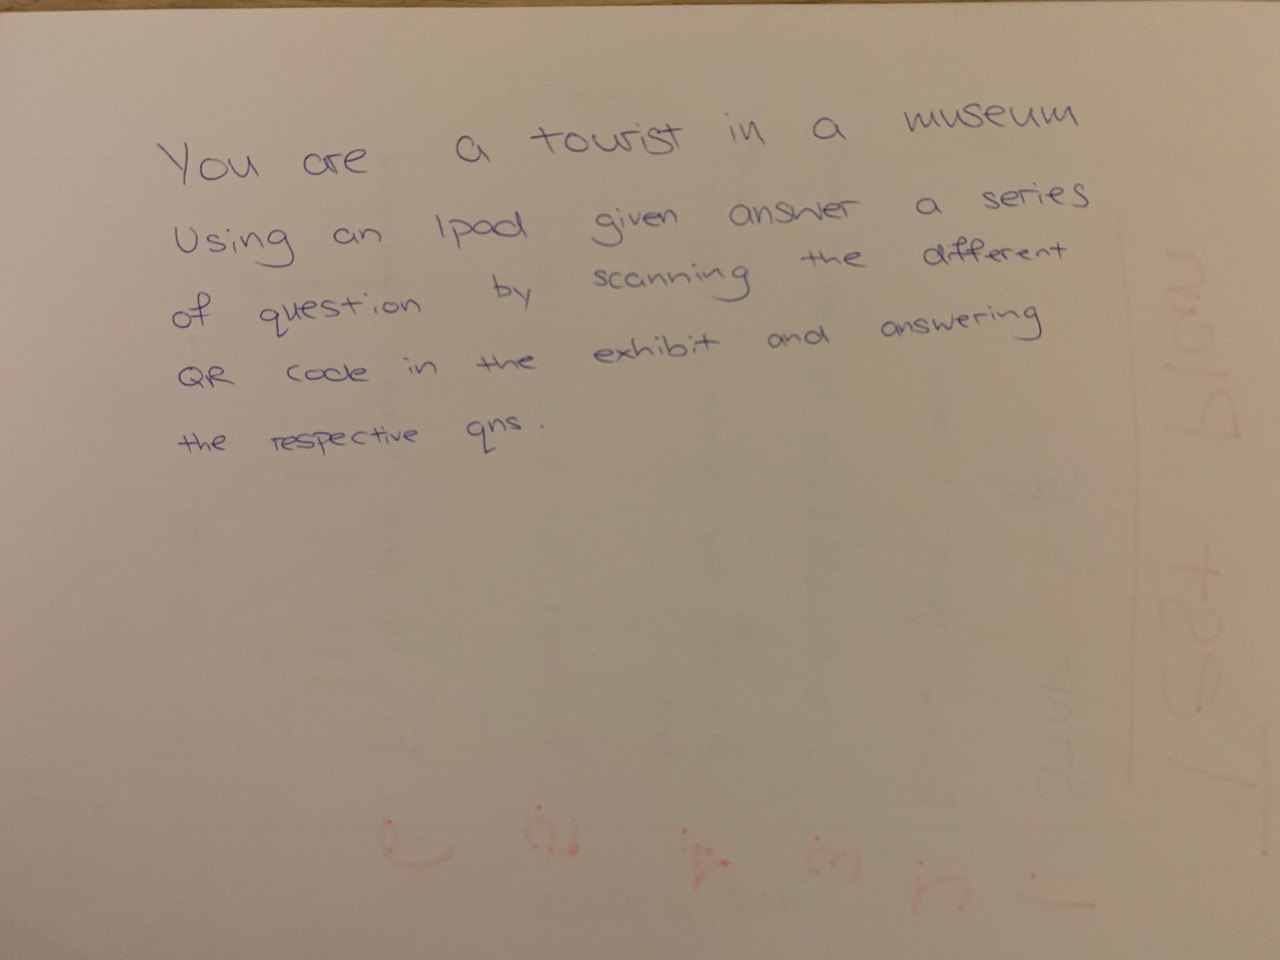 You are a tourist in a museum
Using an Ipad given answer a series
of question by scanning the different
QR code in the exhibit and answering
the respective qns.
Test Plan
1
2
3
4
5
6